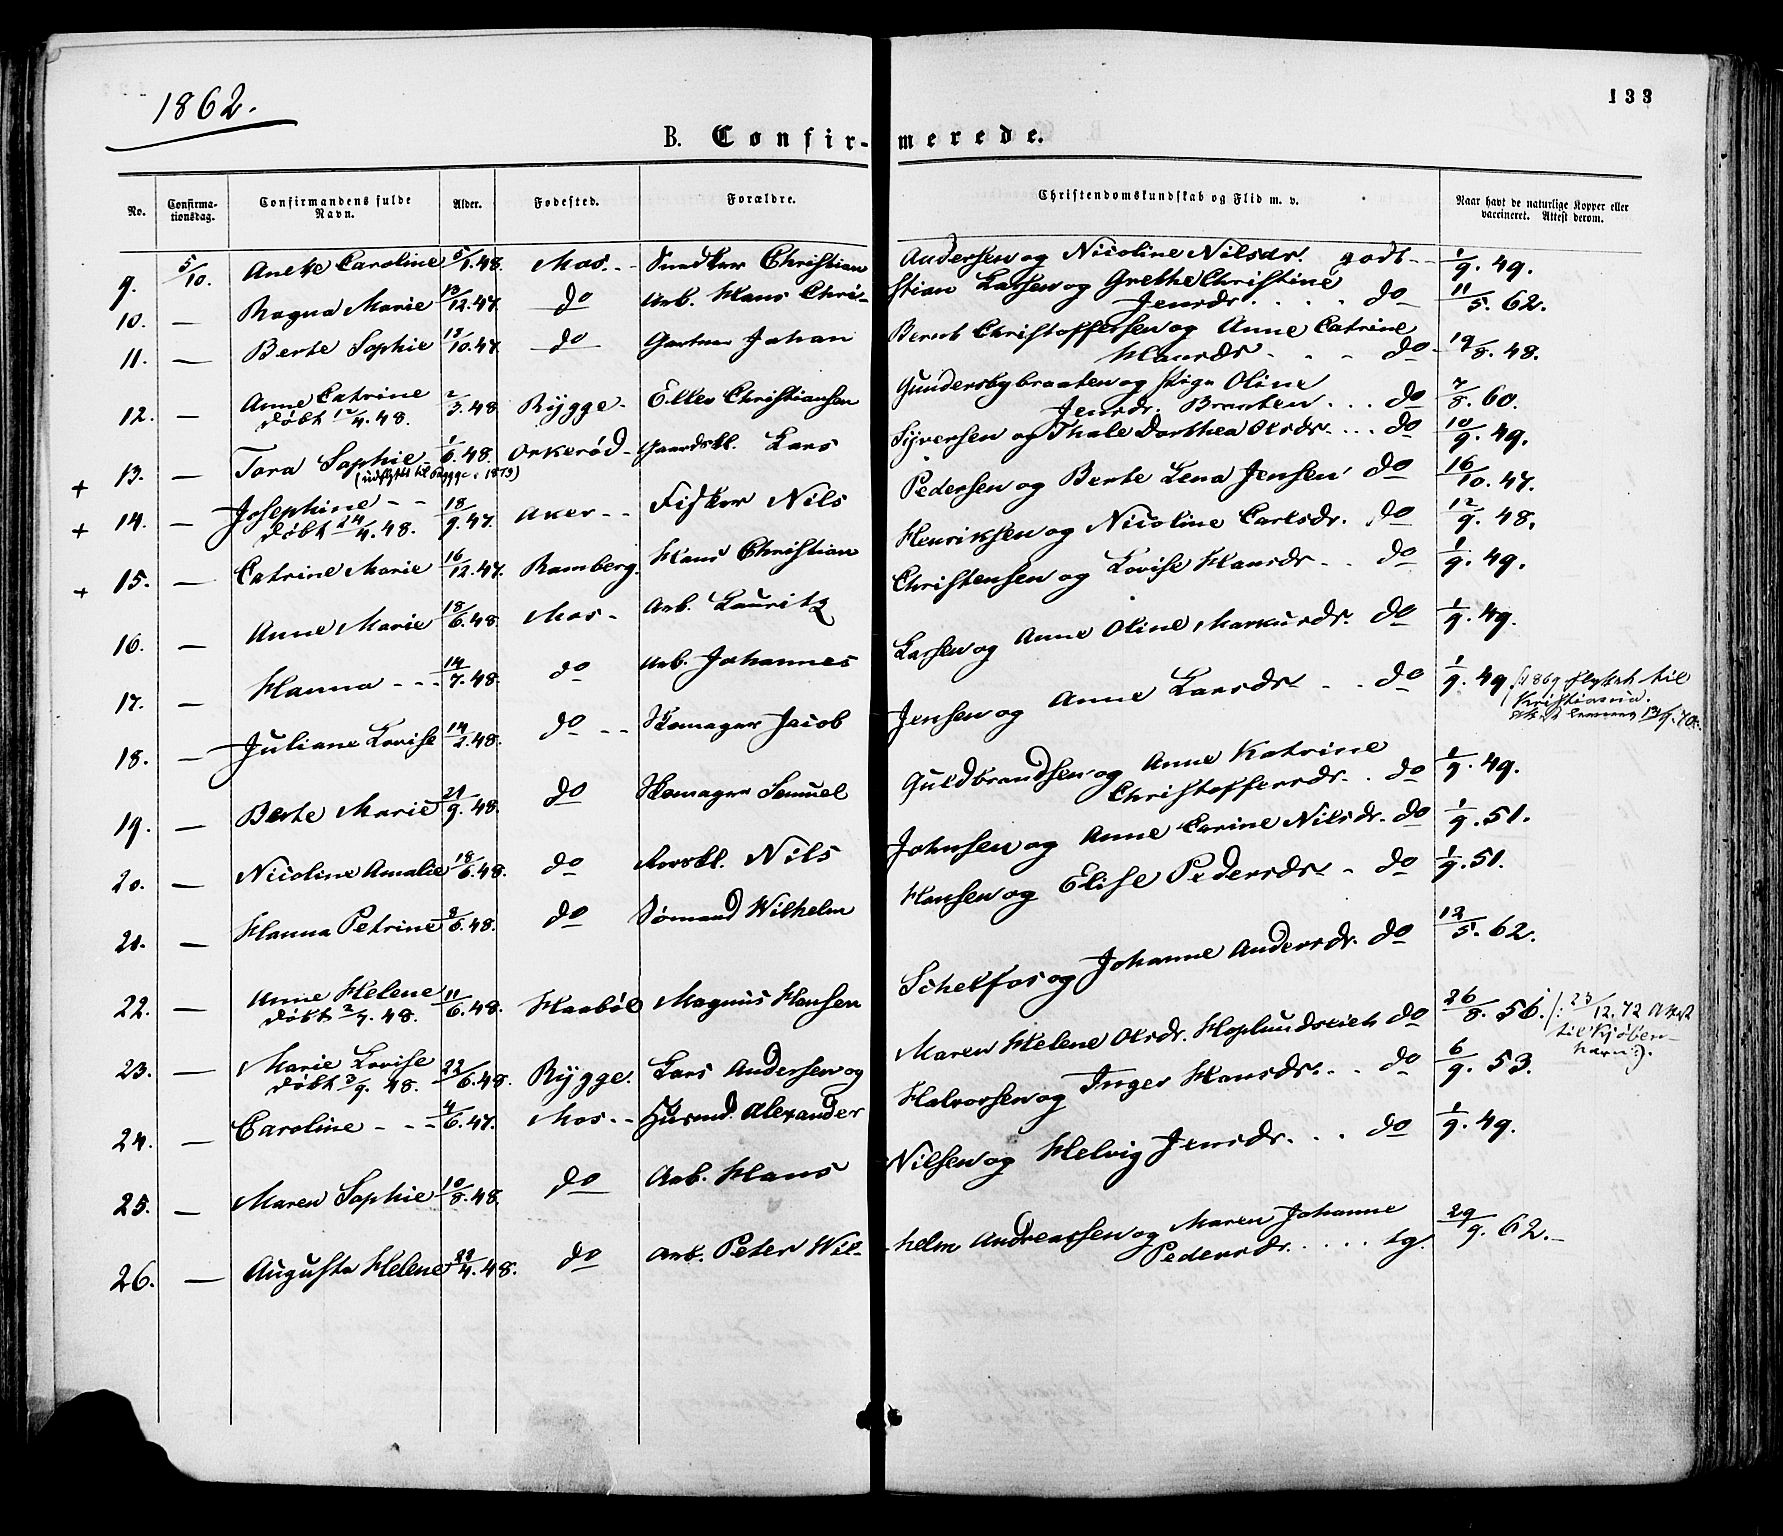 1862.
133
B. Confirmerede.
No. Confirmationsdag. Confirmandens fulde Navn. Alder. Fødested. Forældre. Christendomskundskab og Flid m. v. Naar havt de naturlige Kopper eller vaccineret. Attest derom.
9. 5/10. Anette Caroline 5/1.48. Mos. Christian Andersen og Nicoline Nilsdr. godt 1/9. 49.
10. — Ragna Marie 13/12.47 do Arb. Hans Chri-stian Larsen og Grethe Christine
Jensdr. do 11/5. 62.
11. — Berte Sophie 13/10.47 do Gartner Johan Bernt Christoffersen og Anne Catrine
Hansdr. do 19/8. 48.
12. — Anne Catrine 2/3.48 Rygge Ellev Christiansen Gundersbybraaten og Oline
døbt 12/4. 48. Jensdr. Braaten do 7/8. 60.
+ 13. — Tora Sophie 1/6.48. Orkerød Gaardskl. Lars Syversen og Thale Dorthea Olsdr. do 10/9. 49.
(udflyttet til Rygge 1873)
+ 14. — Josephine 18/9.47. Aker Fisker Nils Pedersen og Berte Lena Jensen do 16/10. 47.
døbt 24/4. 48.
+ 15. — Catrine Marie 16/12.47. Ramberg. Hans Christian Henriksen og Nicoline Carlsdr. do 12/9. 48.
16. — Anne Marie 18/6.48. Mos Arb. Lauritz Christensen og Lovise Hansdr. do 1/9. 49.
17. — Hanna 14/7.48. do Arb. Johannes Larsen og Anne Oline Markusdr. do 1/9. 49.
18. — Juliane Lovise 14/2.48. do Skomager Jacob Jensen og Anne Larsdr. do 1/9. 49. (1869 flyttet til
Kristiania.
19. — Berte Marie 21/9.48. do Skomager Samuel Guldbrandsen og Anne Katrine
Christoffersdr. do 1/9. 49.
20. — Nicoline Amalie 18/6.48. do Nils Johnsen og Anne Carine Nilsdr. do 1/9. 51.
21. — Hanna Petrine 8/6.48. do Sømand Wilhelm Hansen og Elise Pedersdr. do 1/9. 51.
22. — Anne Helene 11/6.48. Haabøl Magnus Hansen Schelfos og Johanne Andersdr. do 12/5. 62.
døbt 2/7. 48.
23. — Marie Lovise 22/6.48. Rygge. Lars Andersen og Maren Helene Olsdr. do 26/8. 56. /: 23/12.72 Attest
døbt 3/9. 48. til Kjøben-
havn :).
24. — Caroline 4/6.47. Mos Husmd. Alexander Halvorsen og Inger Hansdr. do 6/9. 53.
25. — Maren Sophie 10/8.48. do Arb. Hans Nilsen og Helvig Jensdr. do 1/9. 49.
26. — Augusta Helene 22/4.48. do Arb. Peter Wil-helm Andreassen og Maren Johanne
Pedersdr. tg. 29/9. 62.